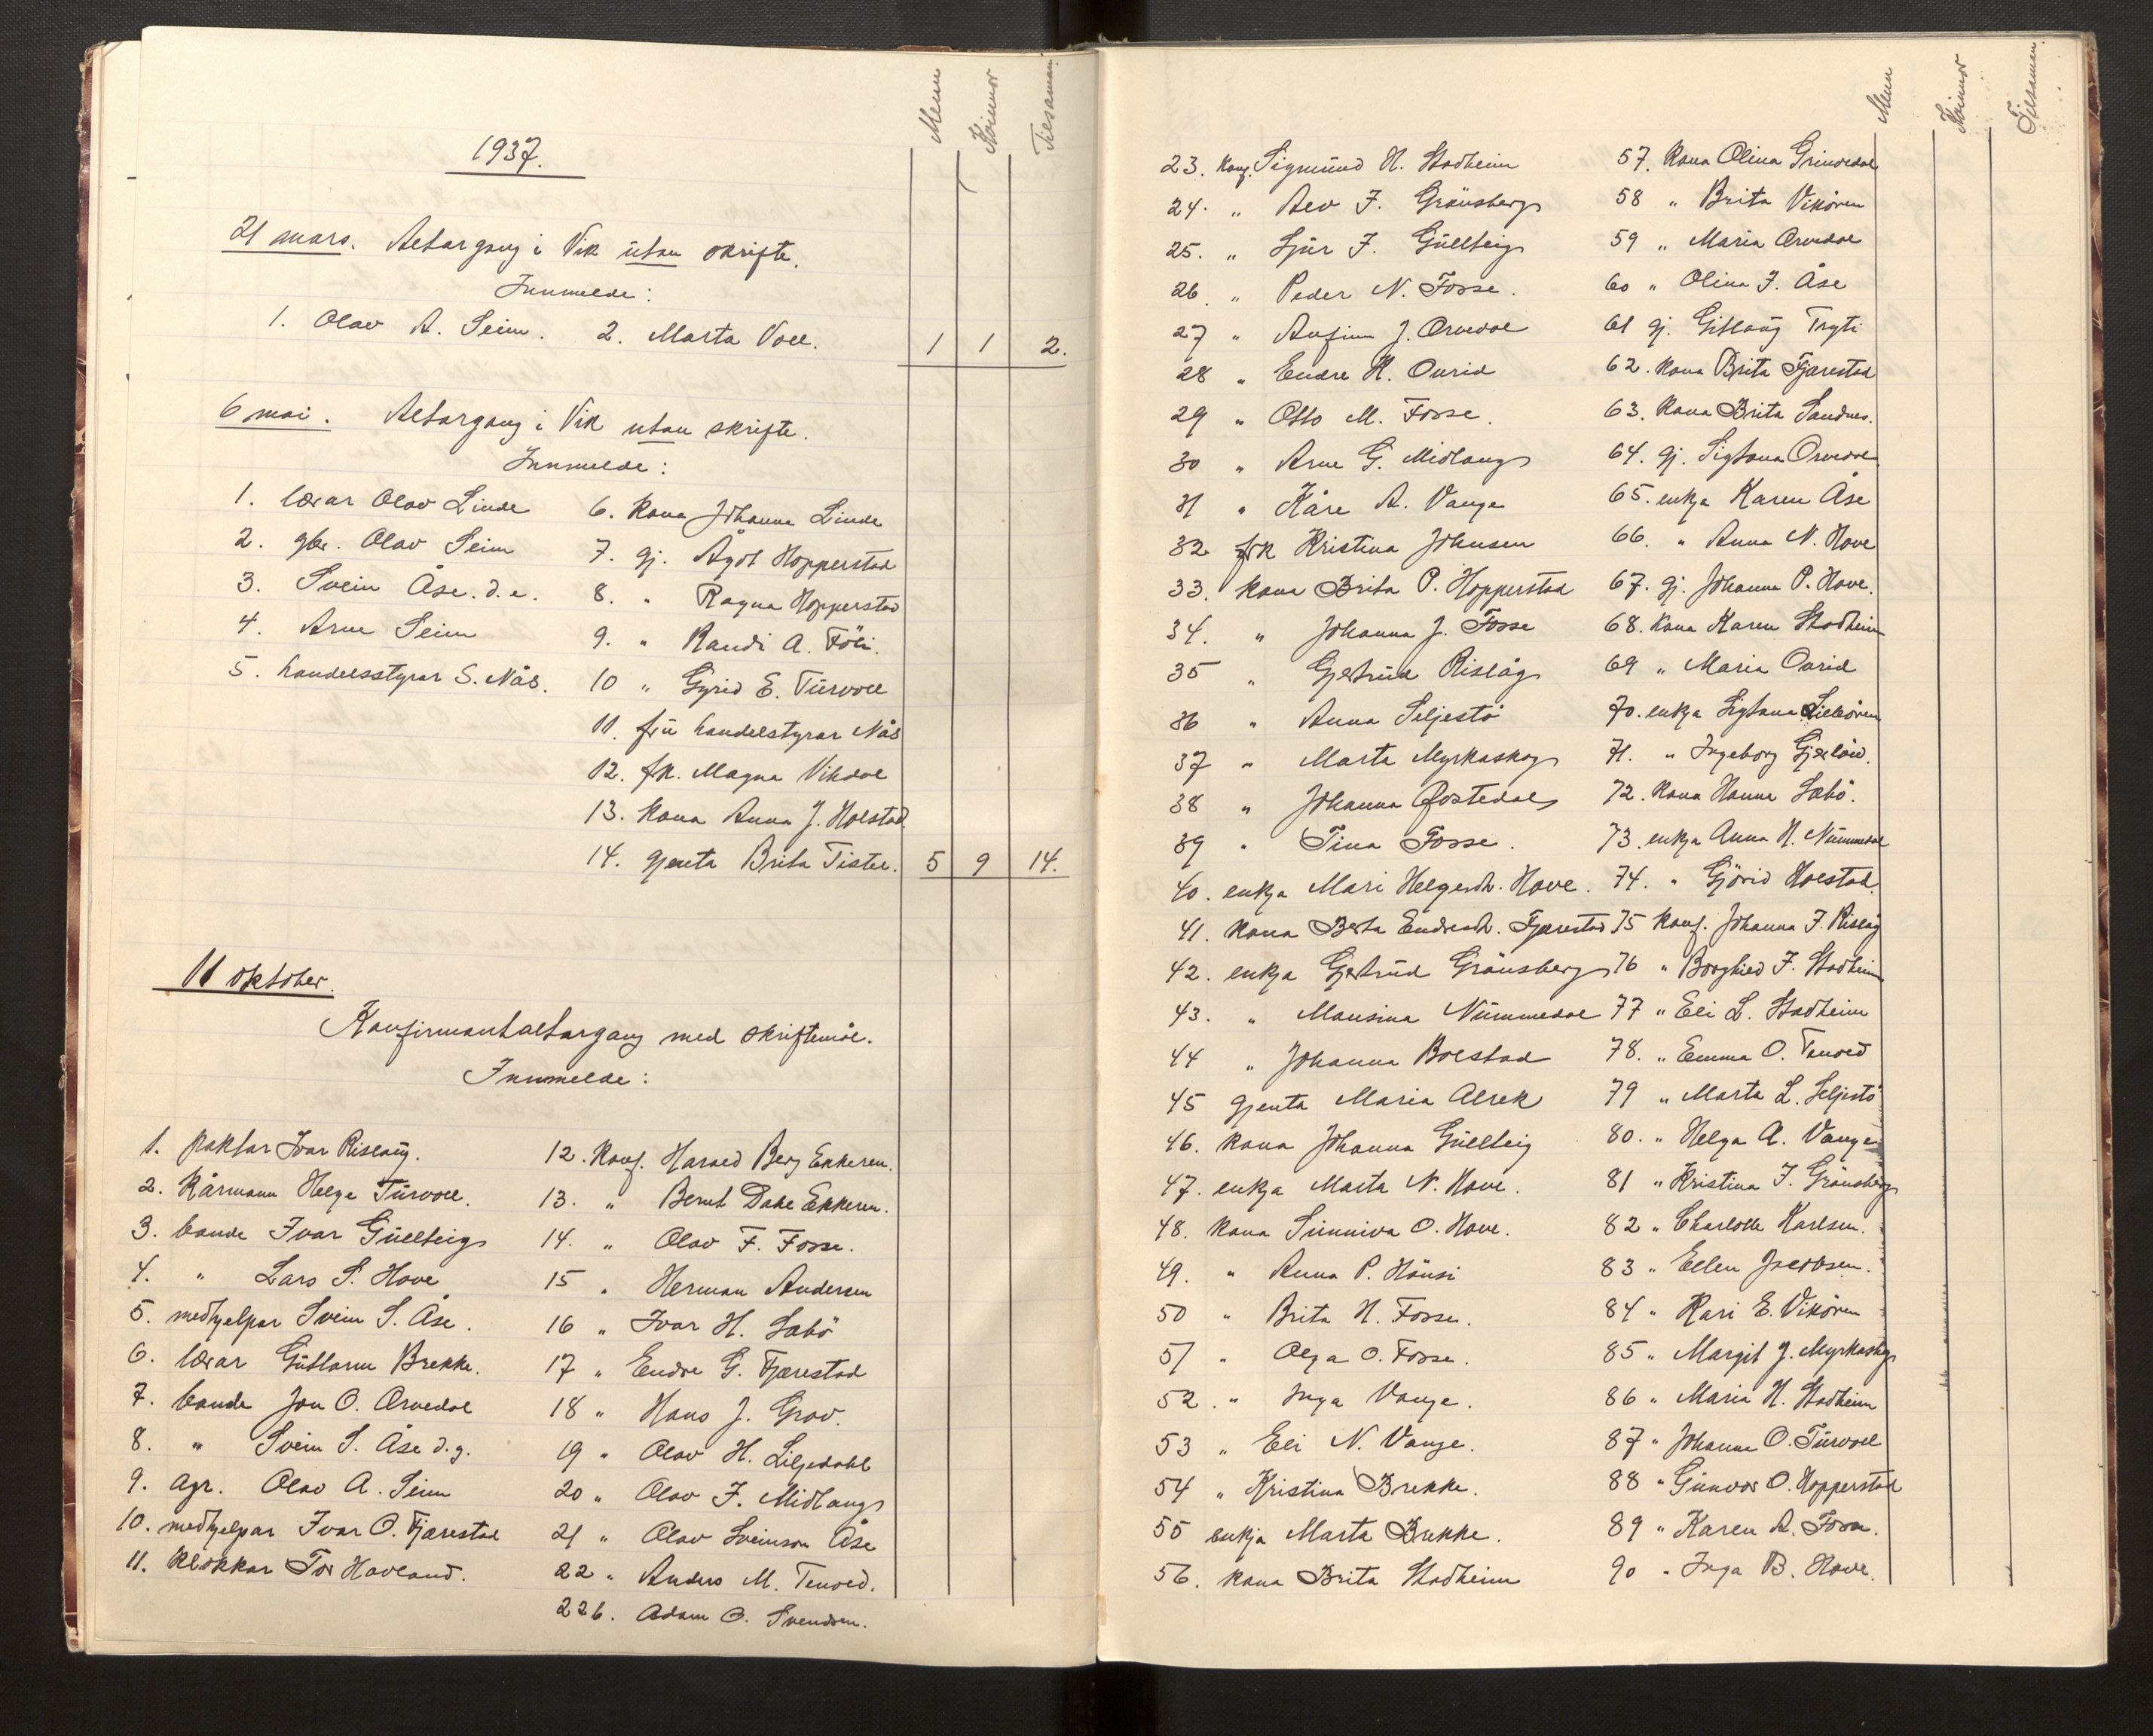 Menn Kvinnor Tilsaman
1937.
21 mars. Altargang i Vik utan skrifte.
Innmelde:
1. Olav A. Seim. 2. Marta Voll. 1 1 2.
6 mai. Altargang i Vik utan skrifte.
Innmelde:
1. lærar Olav Linde
2. gbr. Olav Seim
3. Svein Åse. d.e.
4. Arne Seim
5. handelsstyrar S. Nås.
6. Kona Johanna Linde
7. gj. Ågot Hopperstad
8. " Ragna Hopperstad
9. " Randi A. Föli.
10 " Gyrid E. Turvoll
11. frü handelstyrar Nås
12. frk. Magna Vikdal
13. Kona Anna J. Holstad.
14. gjenta Brita Tistel. 5 9 14.
11 oktober.
Konfirmantaltargang med skriftemål.
Innmelde:
1. paktar Ivar Rislaug.
2. Kårmann Helge Türvoll.
3. bonde Ivar Güllteig
4. " Lars S. Hove
5. medhjelpar Svein S. Åse.
6. lærar Guttorm Brekke.
7. bonde Jon O. Orvedal
8. " Svein S. Åse d.y.
9. agr. Olav A. Seim
10. medhjelpar Ivar O. Fjærestad
11. klokkar Tor Havland.
12. Konf. Harald Berg Ekkeren.
13. " Bernt Dahe Ekkeren.
14. " Olav F. Fosse.
15 " Herman Andersen
16 " Ivar H. Sæbö
17 " Endre G. Fjærestad
18 " Hans J. Grov.
19 " Olav H. Liljedahl
20 " Olav J. Midlang
21 " Olav Sveinson Åse
22 " Anders M. Tenold.
22b. Adam O. Svendsen.
Menn Kvinnor Tilsaman
23. Konf. Sigmund H. Stadheim
24. " Alv J. Grönsberg
25. " Sjur J. Güllteig
26. " Peder N. Fosse.
27 " Anfinn J. Orvedal
28 " Endre H. Ovrid
29 " Otto M. Fosse.
30 " Arne G. Midlang
31 " Kåre A. Vange
32. frk Kristina Johnsen
33. kona Brita P. Hopperstad
34. " Johanna J. Fosse
35 " Gjertrud Rislåg
36 " Anna Seljestö
37 " Marta Myrkaskog
38 " Johanna Ostedal
39 " Tina Fosse.
40. enkja Mari Helgesdt. Hove.
41. kona Berta Endresdt. Fjærestad
42. enkja Gjertrud Grönsberg
43. " Monsina Nummedal
44 " Johanna Bolstad
45 gjenta Maria Alrek
46. kona Johanna Güllteig
47. enkja Marta N. Hove.
48. kona Sunniva O. Hove.
49. " Anna P. Hönsi
50 " Brita H. Fosse.
51 " Olga O. Fosse.
52. " Inga Vange.
53 " Eli N. Vange.
54 " Kristina Brekke.
55 enkja Marta Brekke.
56. kona Brita Stadheim
57. Kona Olina Grinedal
58 " Brita Vikören
59 " Maria Orvedal
60 " Olina J. Åse
61 gj. Gitlaug Tryti
62. kona Brita Fjærestad
63. Kona Brita Sandnes.
64. gj. Sigtona Orvedal
65. enkja Karen Åse
66. " Anna N. Hove
67. gj. Johanna P. Hove.
68. kona Karen Stadheim
69 " Maria Ovrid
70. enkja Sigtona Lilleören
71. " Ingeborg Gjerlöw.
72. kona Hanna Sæbö.
73. enkja Anna H. Nummedal
74. " Gjörid Holstad.
75 Konf. Johanna J. Rislåg
76 " Borghild J. Stadheim
77 " Eli L. Stadheim
78. " Emma O. Tenold
79 " Marta L. Seljestö
80. " Helga A. Vange
81 " Kristina J. Grönsberg
82 " Charlotte Karlsen.
83 " Ellen Jacobsen.
84 " Kari E. Vikören
85 " Margit J. Myrkaskog
86 " Maria H. Stadheim
87 " Johanna O. Türvoll
88 " Gunvor O. Hopperstad
89 " Karen A. Fosse.
90 " Inga B. Hove.